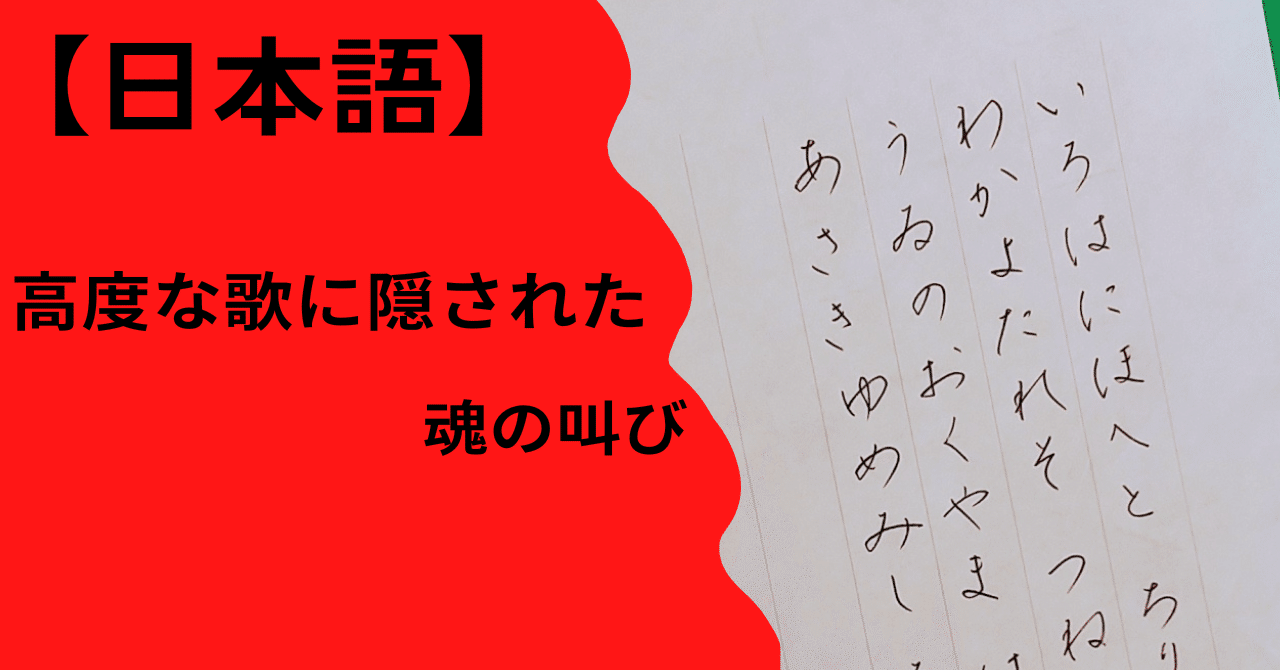 【日本語】
高度な歌に隠された
魂の叫び
いろはにほへと ちり
わかよたれそ つね
うゐのおくやま
あさきゆめみし